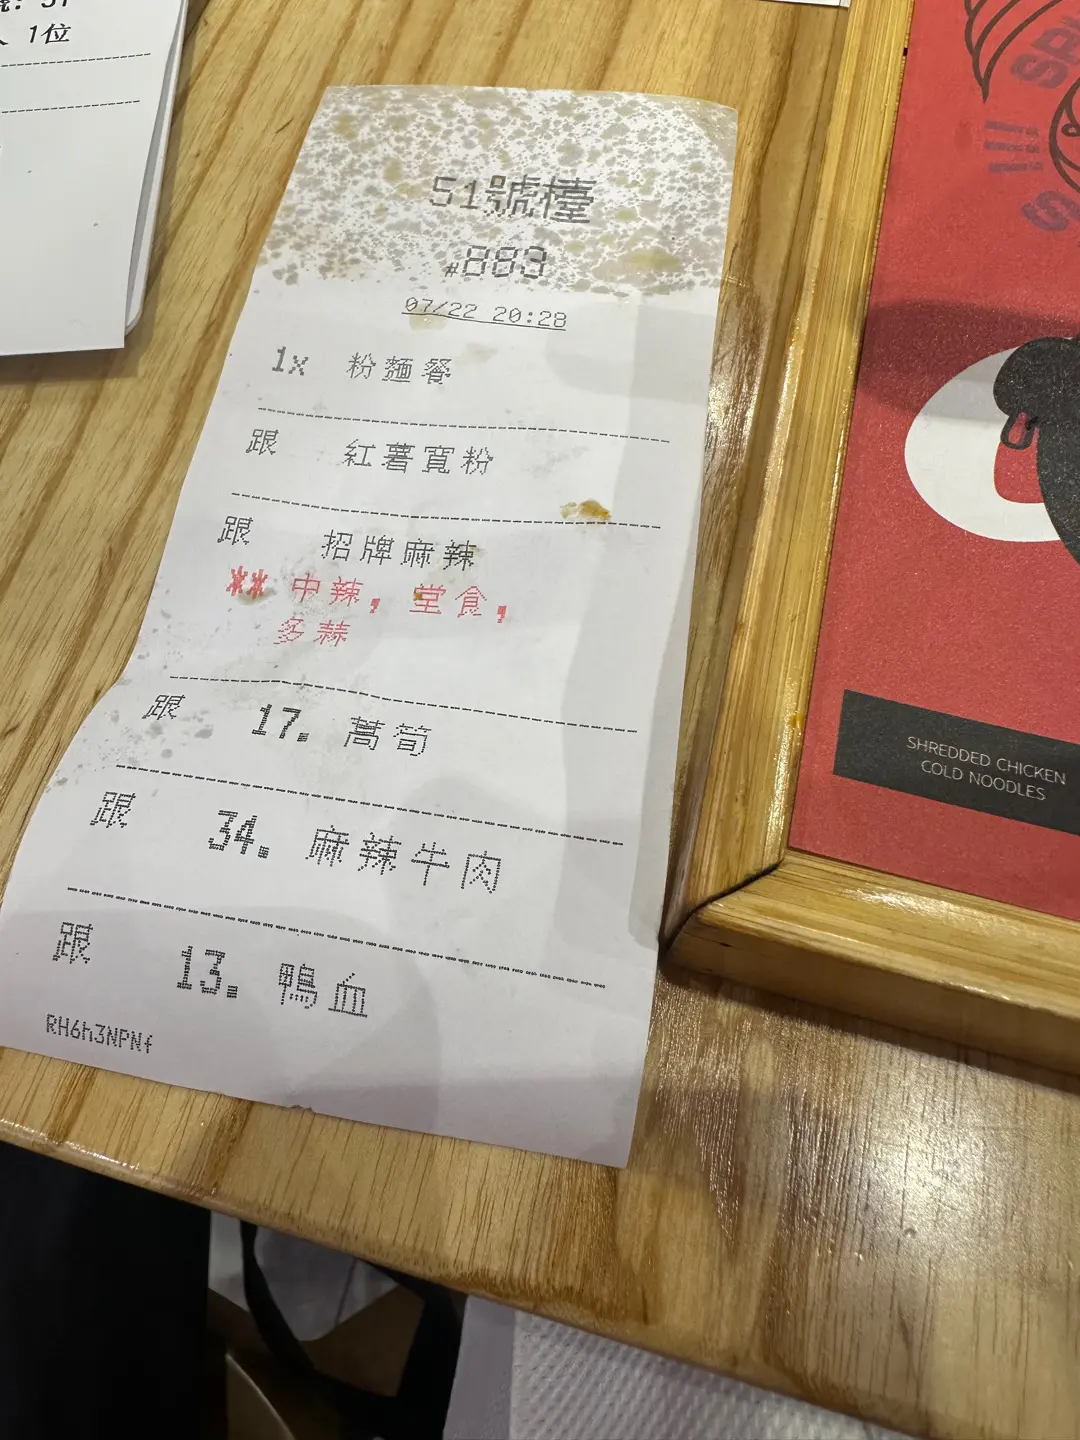 1位
51號檯
#883
07/22 20:28
1x 粉麵餐
跟 紅薯寬粉
跟 招牌麻辣
** 中辣, 堂食,
多蒜
跟 17. 萵筍
跟 34. 麻辣牛肉
跟 13. 鴨血
RH6h3NPNf
SHREDDED CHICKEN
COLD NOODLES